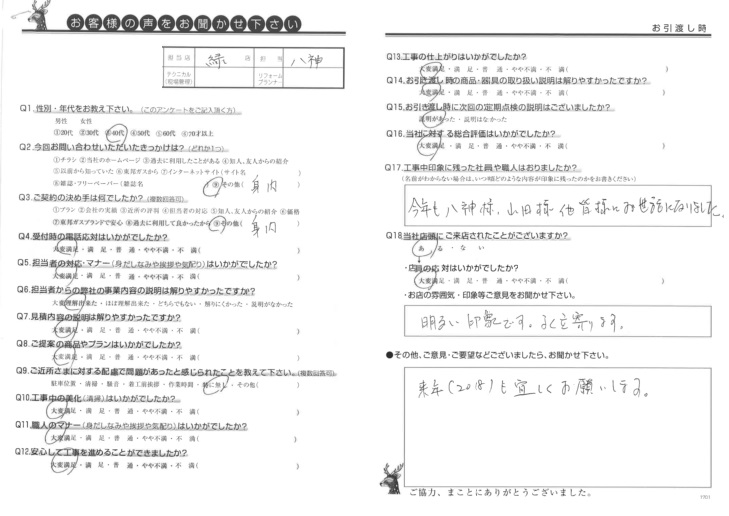 お客様の声をお聞かせ下さい
担当店 緑 店 担当 八神
テクニカル(現場管理) リフォームプランナー
Q1.性別・年代をお教え下さい。(このアンケートをご記入頂く方)
男性 女性
①20代 ②30代 ③40代 ④50代 ⑤60代 ⑥70才以上
Q2.今回お問い合わせいただいたきっかけは?(どれか1つ)
①チラシ ②当社のホームページ ③過去に利用したことがある ④知人、友人からの紹介
⑤以前から知っていた ⑥東邦ガスから ⑦インターネットサイト(サイト名 )
⑧雑誌・フリーペーパー(雑誌名 ) ⑨その他( 身内 )
Q3.ご契約の決め手は何でしたか?(複数回答可)
①プラン ②会社の実績 ③近所の評判 ④担当者の対応 ⑤知人、友人からの紹介 ⑥価格
⑦東邦ガスブランドで安心 ⑧過去に利用して良かったから ⑨その他( 身内 )
Q4.受付時の電話応対はいかがでしたか?
大変満足・満 足・普 通・やや不満・不 満( )
Q5.担当者の対応・マナー(身だしなみや挨拶や気配り)はいかがでしたか?
大変満足・満 足・普 通・やや不満・不 満( )
Q6.担当者からの弊社の事業内容の説明は解りやすかったですか?
大変理解出来た・ほぼ理解出来た・どちらでもない・解りにくかった・説明がなかった
Q7.見積内容の説明は解りやすかったですか?
大変満足・満 足・普 通・やや不満・不 満( )
Q8.ご提案の商品やプランはいかがでしたか?
大変満足・満 足・普 通・やや不満・不 満( )
Q9.ご近所さまに対する配慮で問題があったと感じられたことを教えて下さい。(複数回答可)
駐車位置・清掃・騒音・着工前挨拶・作業時間・特に無し・その他( )
Q10.工事中の美化(清掃)はいかがでしたか?
大変満足・満 足・普 通・やや不満・不 満( )
Q11.職人のマナー(身だしなみや挨拶や気配り)はいかがでしたか?
大変満足・満 足・普 通・やや不満・不 満( )
Q12.安心して工事を進めることができましたか?
大変満足・満 足・普 通・やや不満・不 満( )
お引渡し時
Q13.工事の仕上がりはいかがでしたか?
大変満足・満 足・普 通・やや不満・不 満( )
Q14.お引き渡し時の商品・器具の取り扱い説明は解りやすかったですか?
大変満足・満 足・普 通・やや不満・不 満( )
Q15.お引き渡し時に次回の定期点検の説明はございましたか?
説明があった・説明はなかった
Q16.当社に対する総合評価はいかがでしたか?
大変満足・満 足・普 通・やや不満・不 満( )
Q17.工事中印象に残った社員や職人はおりましたか?
(名前がわからない場合は、いつ頃どのような内容が印象に残ったのかをお書きください)
今年も 八神様、山田様他皆様にお世話になりました。
Q18.当社店頭にご来店されたことがございますか?
あ る・な い
・店員の応対はいかがでしたか?
大変満足・満 足・普 通・やや不満・不 満( )
・お店の雰囲気・印象等ご意見をお聞かせ下さい。
明るい印象です。よく立寄ります。
●その他、ご意見・ご要望などございましたら、お聞かせ下さい。
来年(2018)も宜しくお願いします。
ご協力、まことにありがとうございました。
1701